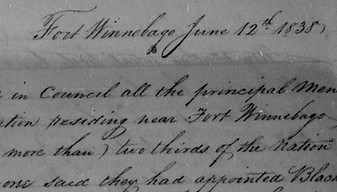 Fort Winnebago June 12th 1838
in Council all the principal Men
ation residing near Fort Winnebago
more than) two thirds of the Nation
said they had appointed Black